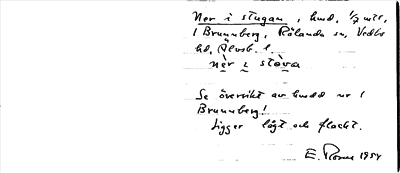 Ner i stugan, hmd, 1/7 mtl,
1 Brunnberg, Rölanda sn, Vedbo
hd, Älvsb. l.
nèr i stòva
Se översikt av hmdd nr 1
Brunnberg!
Ligger lågt och flackt.
E. 1954